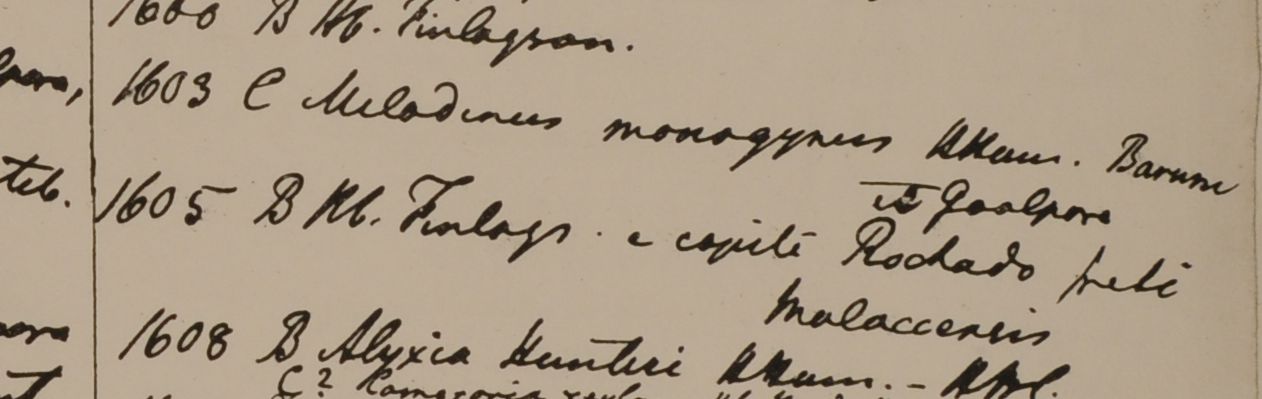 1600 B Hb. Finlayson.
1603 C Melodinus monogynus HHam. Barum
et Goalpara
1605 B Hb. Finlays. e capite Rochado freti
Malaccensis
1608 B Alyxia Hunteri HHam. –
C?